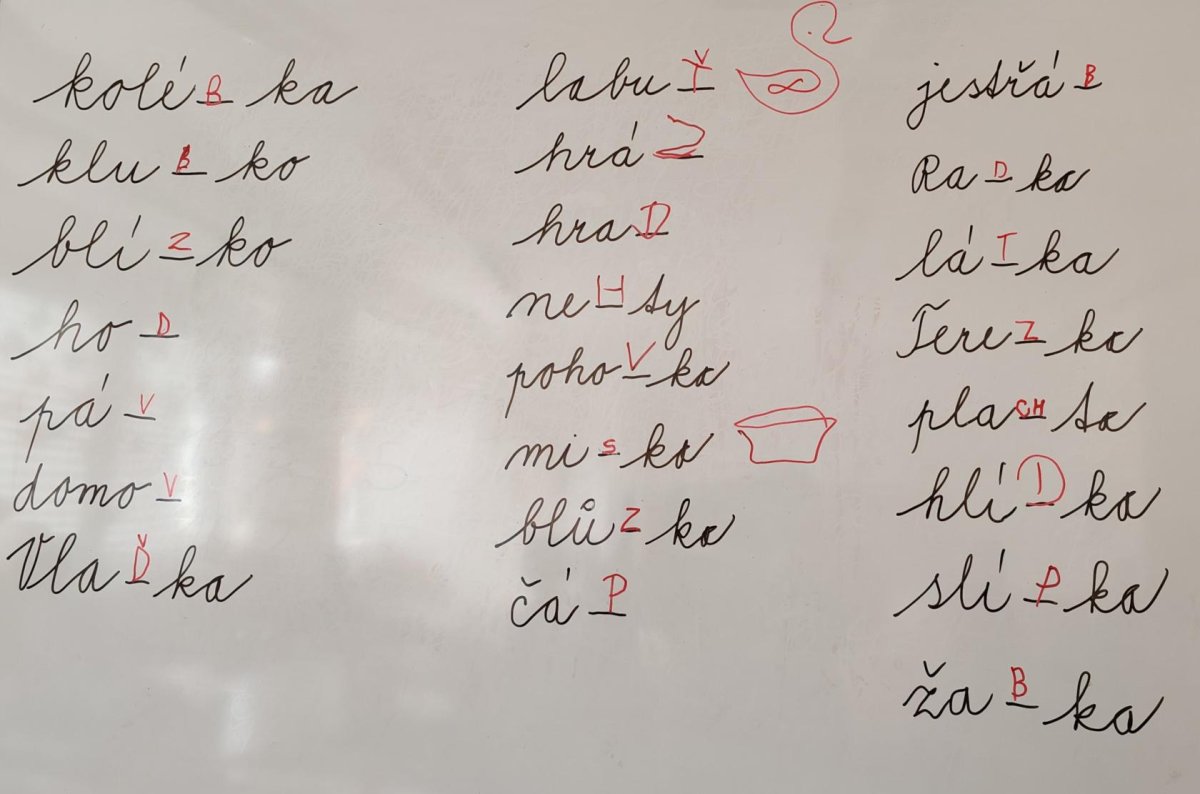 koléBka
kluBko
blíZko
hoD
páV
domoV
VlaĎka
labuŤ
hráZ
hraD
neHty
pohoVka
miska
blůZka
čáP
jestřáB
RaDka
láTka
TereZka
plaCHta
hlíDka
slíPka
žaBka